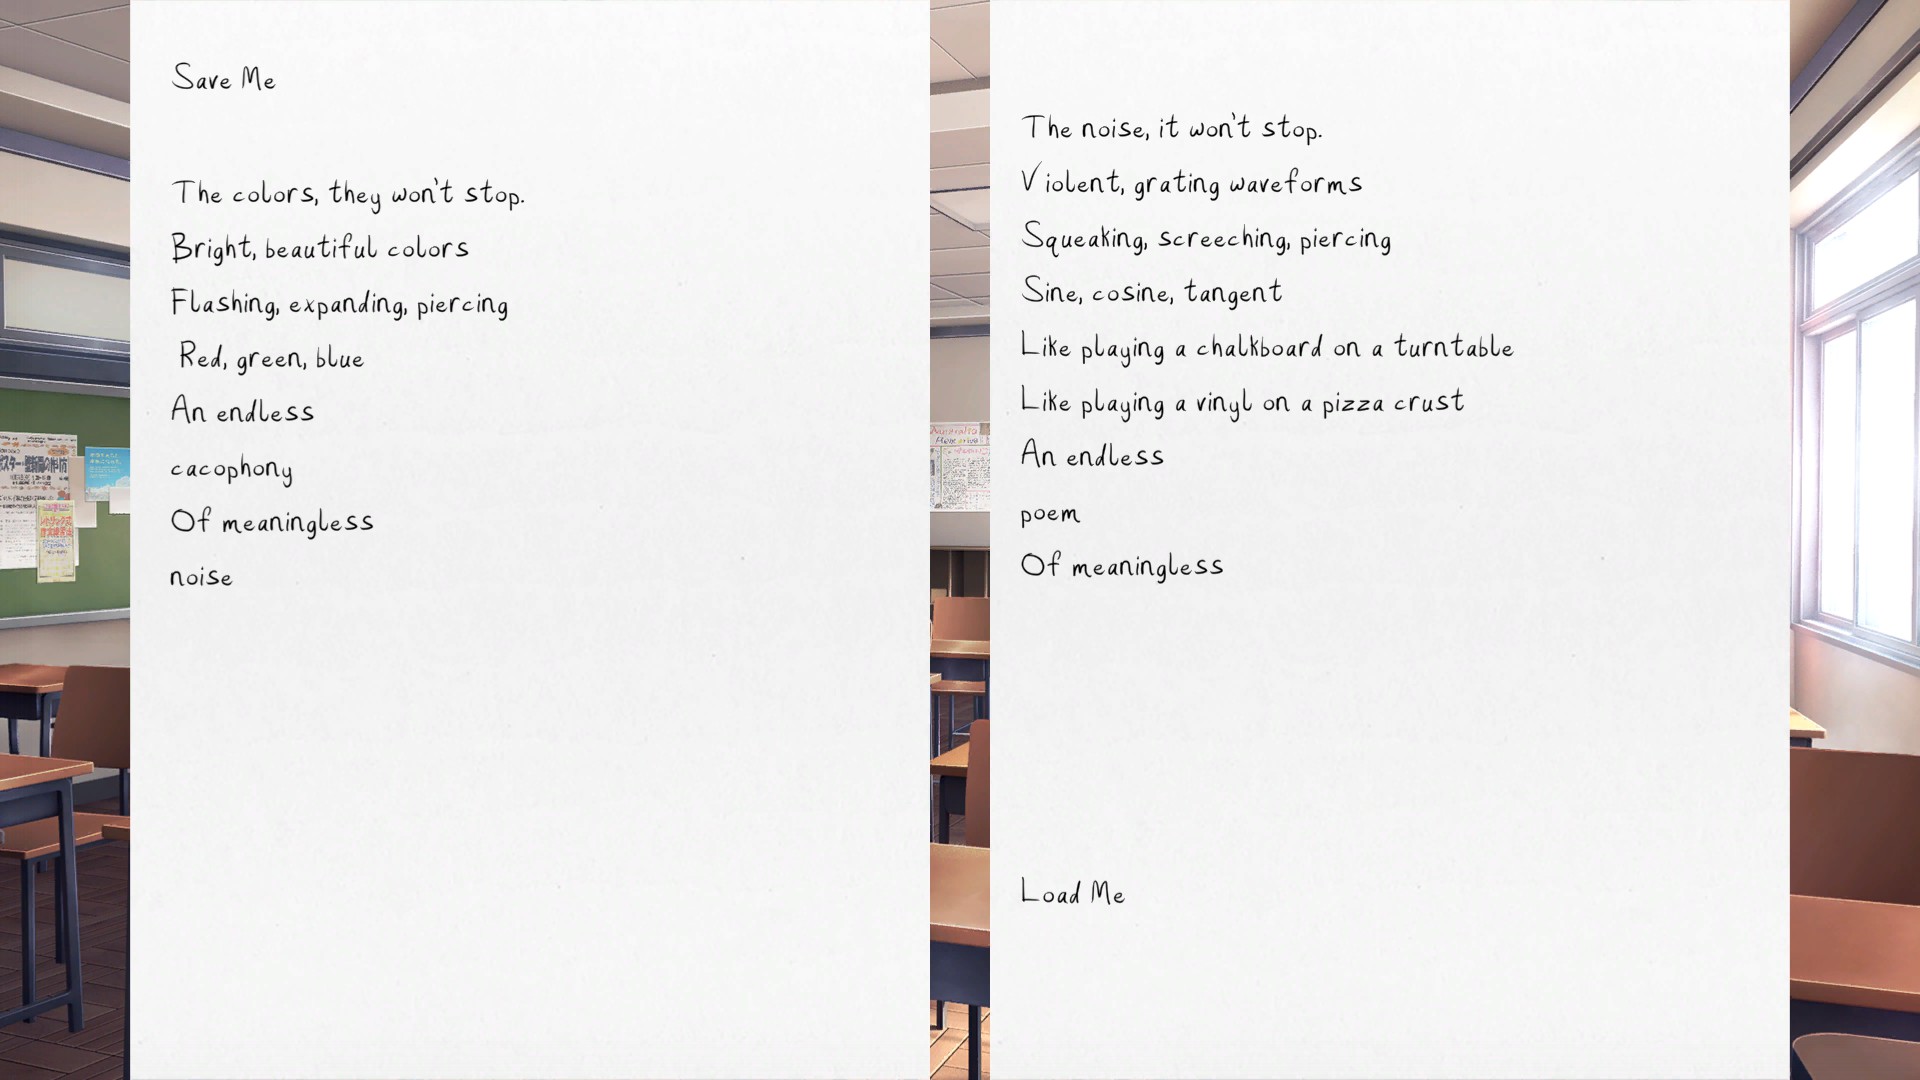 Save Me
The colors, they won't stop.
Bright, beautiful colors
Flashing, expanding, piercing
Red, green, blue
An endless
cacophony
Of meaningless
noise
The noise, it won't stop.
Violent, grating waveforms
Squeaking, screeching, piercing
Sine, cosine, tangent
Like playing a chalkboard on a turntable
Like playing a vinyl on a pizza crust
An endless
poem
Of meaningless
Load Me